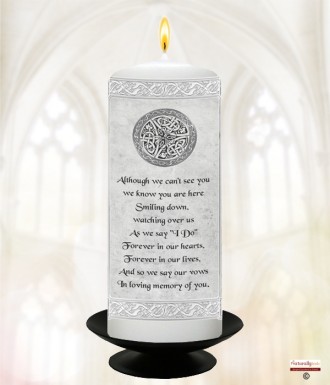 Although we can't see you
we know you are here
Smiling down,
watching over us
As we say "I Do"
Forever in our hearts,
Forever in our lives,
And so we say our vows
In loving memory of you.
©